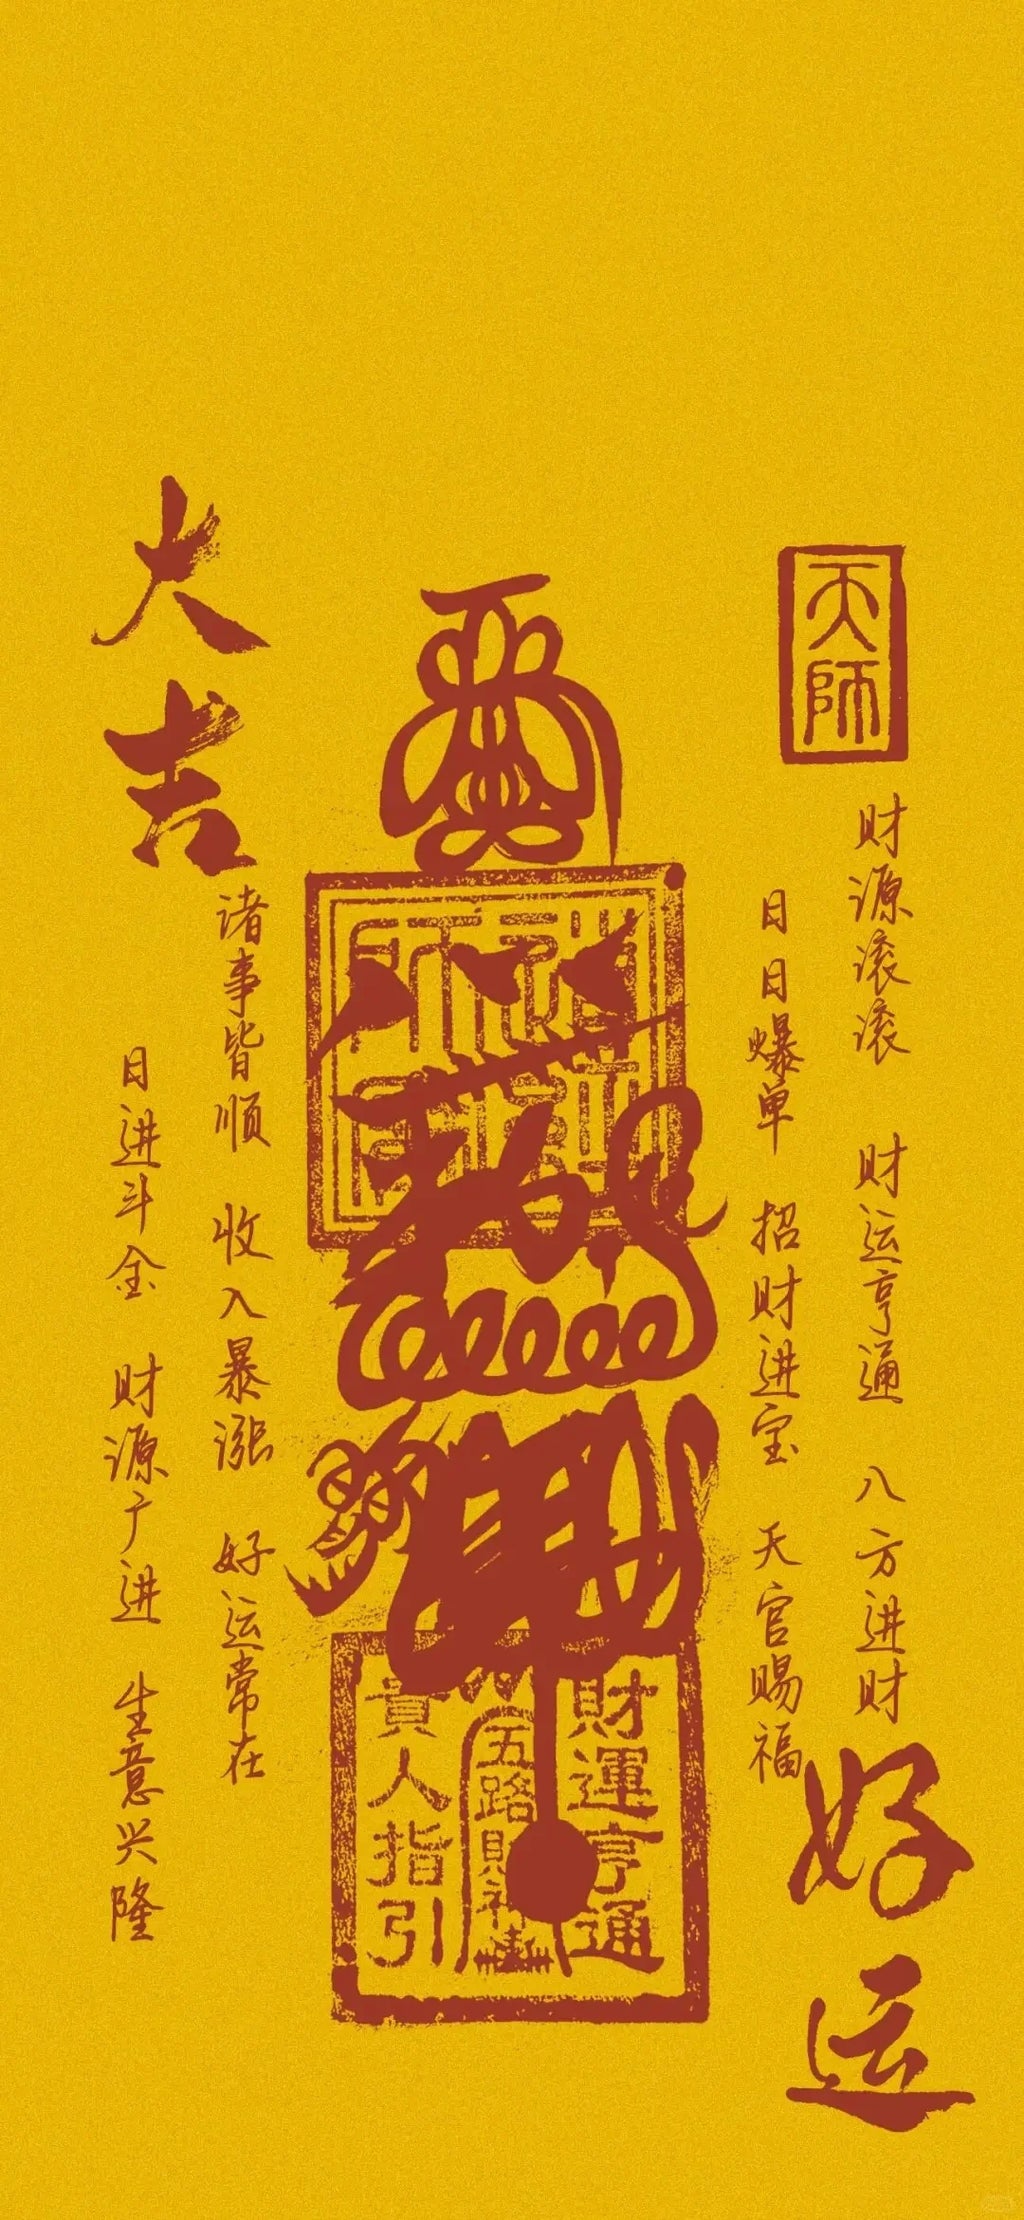 天师
财源滚滚 财运亨通 八方进财
好运
日日爆单 招财进宝 天官赐福
財運亨通
五路財神
貴人指引
大吉
诸事皆顺 收入暴涨 好运常在
日进斗金 财源广进 生意兴隆